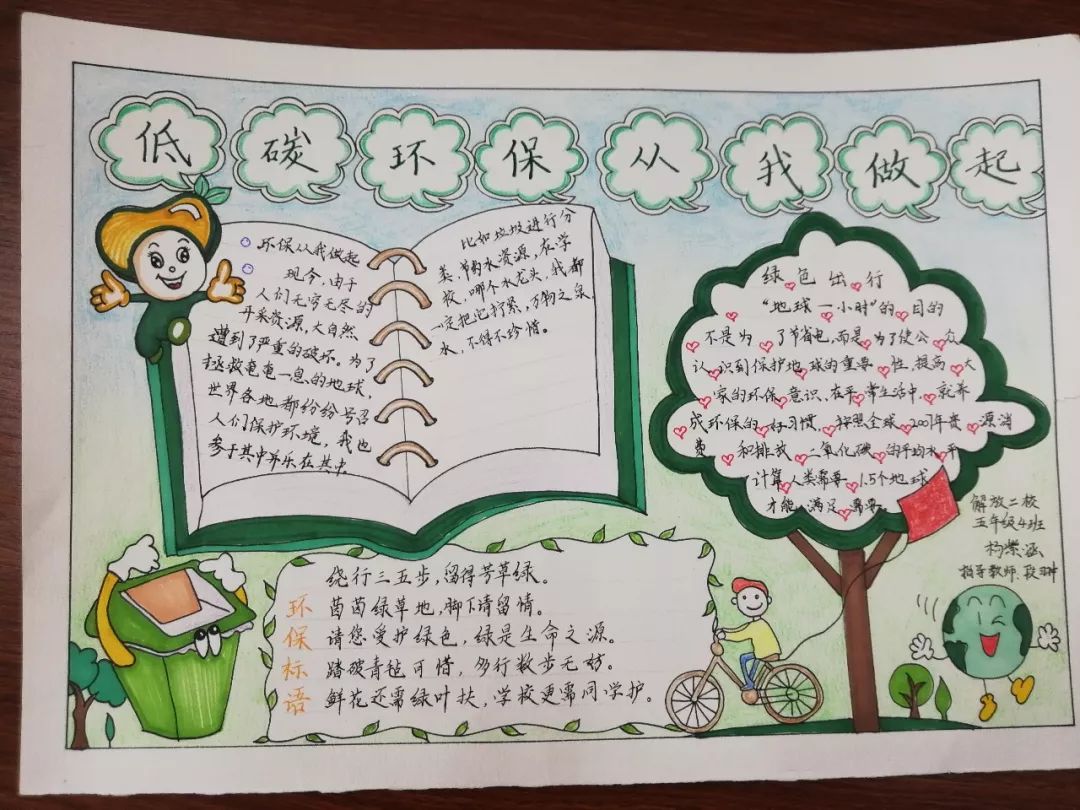 低碳环保从我做起
环保从我做起
现今,由于
人们无穷无尽的
开采资源,大自然
遭到了严重的破坏。为了
拯救奄奄一息的地球,
世界各地都纷纷号召
人们保护环境,我也
参于其中并乐在其中
比如垃圾进行分
类,节约水资源,在学
校,哪个水龙头,我都
一定把它拧紧,万物之泉
水,不得不珍惜。
绿色出行
“地球一小时”的目的
不是为了节省电,而是为了使公众
认识到保护地球的重要性,提高大
家的环保意识,在平常生活中,就养
成环保的好习惯,按照全球2007年资源消
费和排放二氧化碳的平均水平
计算人类需要1.5个地球
才能满足需要。
解放二校
五年级4班
杨紫涵
指导教师:段翀
环保标语
绕行三五步,留得芳草绿。
茵茵绿草地,脚下请留情。
请您爱护绿色,绿是生命之源。
踏破青毡可惜,多行数步无妨。
鲜花还需绿叶扶,学校更需同学护。